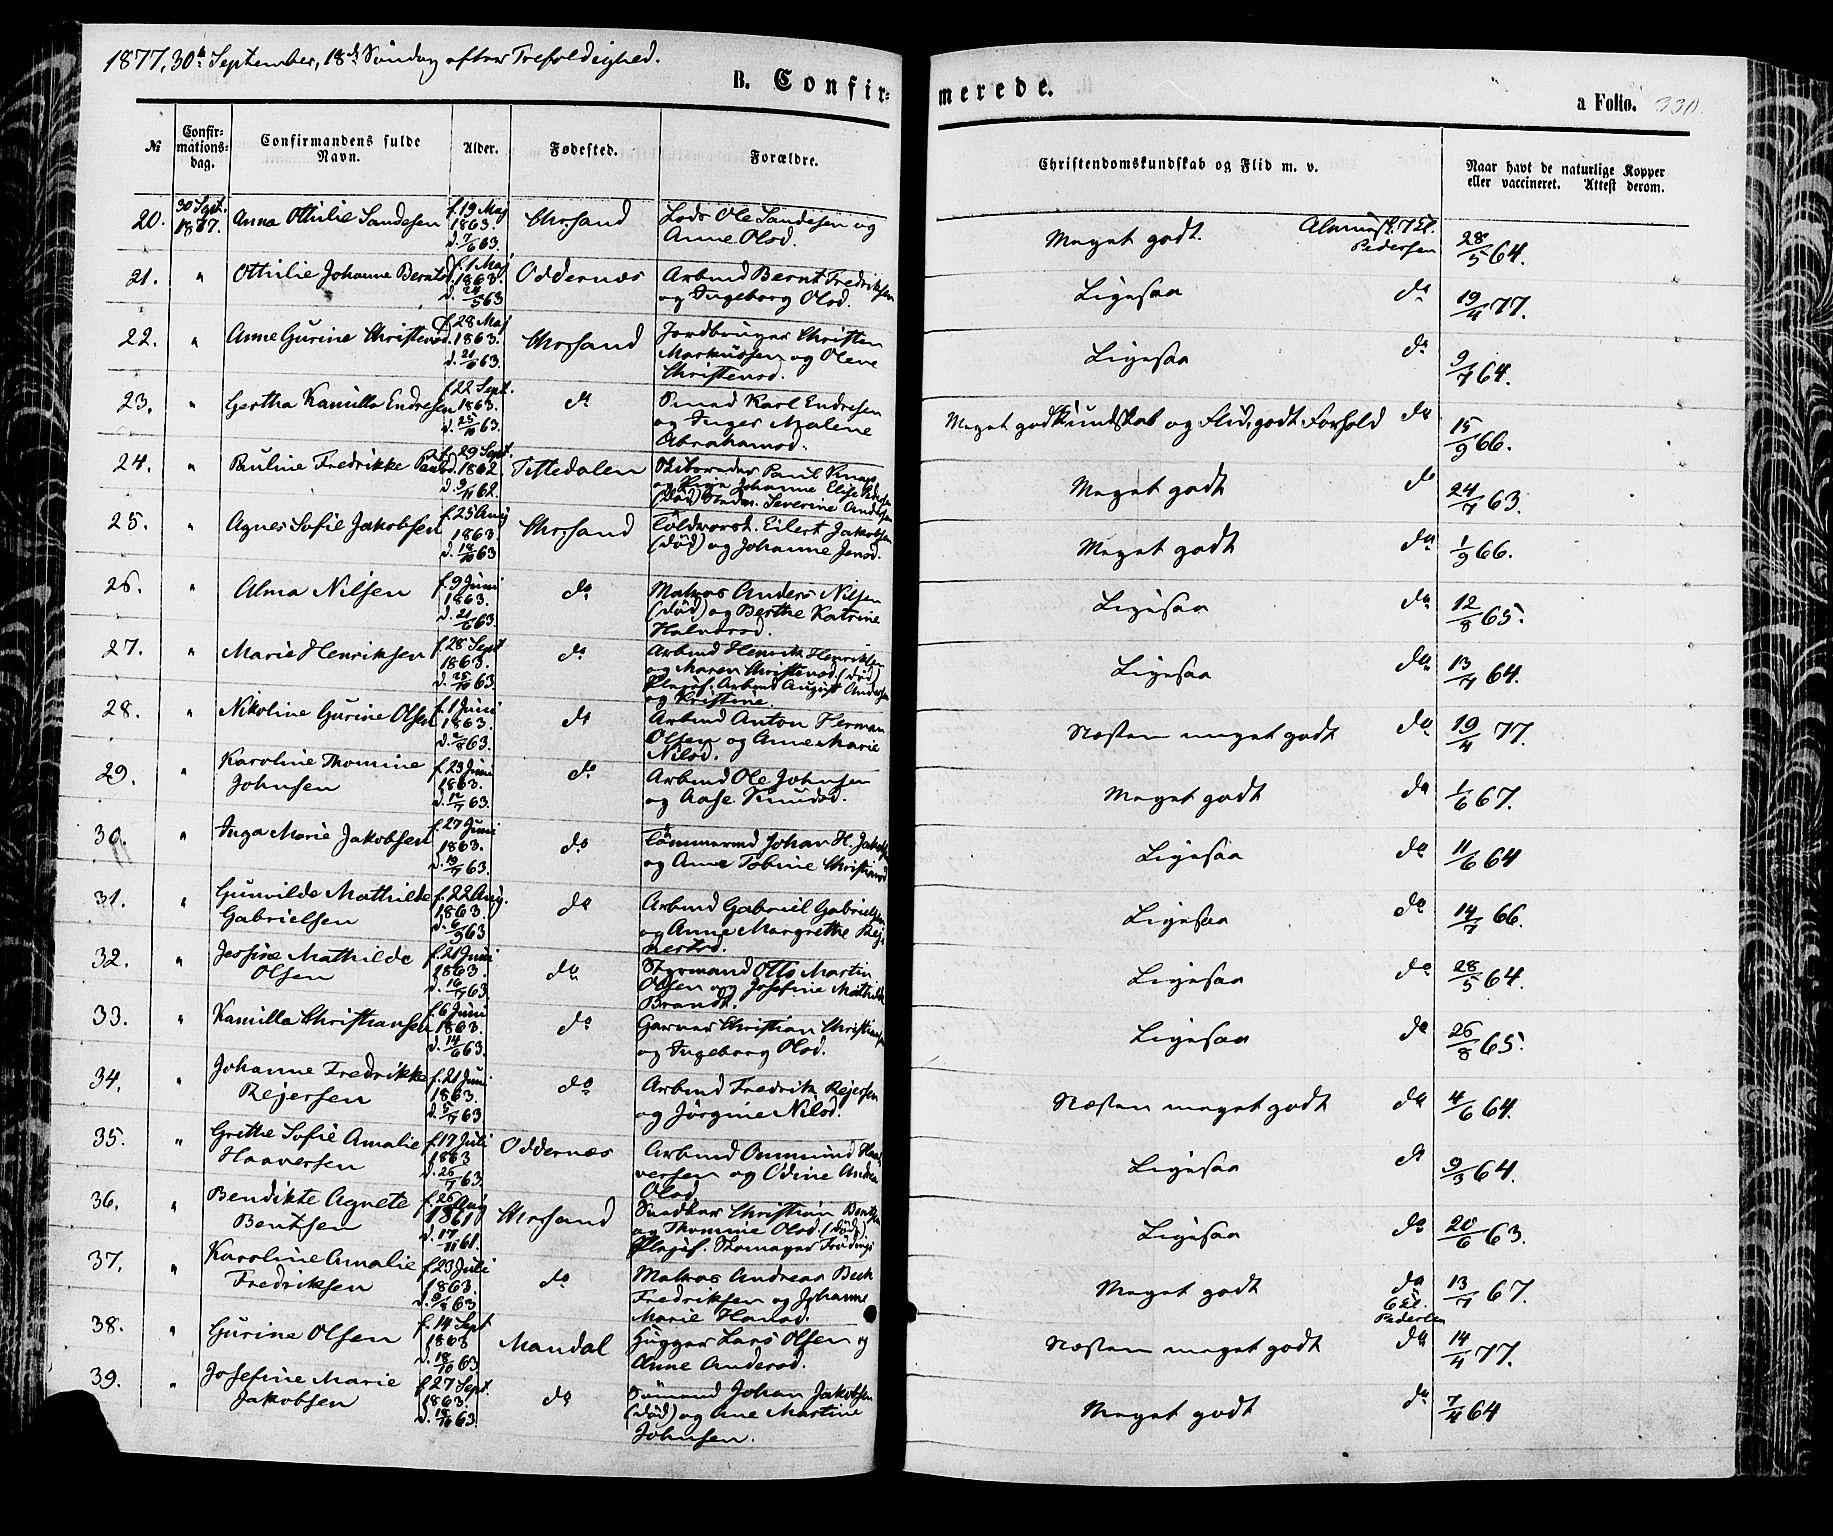 1877, 30te September, 18de Søndag efter Trefoldighed.
B. Confirmerede.
a Folio. 330.
№ Confirmationsdag. Confirmandens fulde Navn. Alder. Fødested. Forældre. Christendomskundskab og Flid m. v. Naar havt de naturlige Kopper eller vaccineret. Attest derom.
20. 30 Sept. 1877. Anna Othilie Sandersen f. 19 Maj 1863. d. 7/6 63. Chrsand Lods Ole Sandersen og Anne Olsd. Meget godt. Almuesk. 7 Kl. Pedersen 28/5 64.
21. " Othilie Johanne Berntsd. f. 1 Maj 1863. d. 24/5 63 Oddernæs Arbmd Bernt Fredriksen og Ingeborg Olsd. Ligesaa do 19/4 77.
22. " Anne Gurine Christensd. f. 28 Maj 1863. d. 21/6 63. Chrsand Jordbruger Christen Markussen og Olene Christensd. Ligesaa do 9/7 64.
23. " Gertha Kamilla Endresen f. 22 Sept. 1863. d. 25/10 63. do Smed Karl Endresen og Inger Malene Abrahamsd. Meget god Kundskab og Flid, godt Forhold do 15/9 66.
24. " Pauline Fredrikke f. 29 Sept. 1862 d. 9/11 62. Tistedalen Skibsreder Paul og Johanne Elise (død) Severine Meget godt do 24/7 63.
25. " Agnes Sofie Jakobsen f. 25 Aug 1863 d. 18/10 63 Chrsand Toldvorst. Eilert Jakobsen (død) og Johanne Jensd. Meget godt do 1/9 66.
26. " Alma Nilsen f. 9 Juni 1863. d. 21/6 63. do Matros Anders Nilsen (død) og Berthe Katrine Halvorsd. Ligesaa do 12/8 65.
27. " Marie Henriksen f. 28 Sept 1863. d. 25/10 63. do Arbmd Henrik Henriksen og Maren Christensd. (død) Plejef. Arbmd August Andersen og Kristine. Ligesaa do 13/7 64.
28. " Nikoline Gurine Olsen f. 1 Juni 1863. d. 2/8 63. do Arbmd Anton Herman Olsen og Ane Marie Nilsd. Næsten meget godt do 19/4 77.
29. " Karoline Thomine Johnsen f. 23 Juni 1863. d. 12/7 63. do Arbmd Ole Johnsen og Aase Knudsd. Meget godt do 1/6 67.
30. " Inga Marie Jakobsen f. 27 Juni 1863. d. 19/7 63. do Tømmermd Johan H. Jakobsen og Anne Tobine Christiansd Ligesaa do 11/6 64
31. " Gunvilde Mathilde Gabrielsen f. 22 Aug. 1863. d. 6/9 63 do Arbmd Gabriel Gabrielsen og Anne Margrethe Rejnertsd. Ligesaa do 14/7 66.
32. " Josefine Mathilde Olsen f. 21 Juni 1863. d. 16/7 63. do Styrmand Otto Martin Olsen og Josefine Mathilde Brandt. Ligesaa do 28/5 64.
33. " Kamilla Christiansen f. 6 Juni 1863. d. 14/6 63. do Garver Christian Christiansen og Ingeborg Olsd. Ligesaa do 26/8 65.
34. " Johanne Fredrikke Rejersen f. 21 Juni 1863. d. 5/7 63 do Arbmd Fredrik Rejersen og Jørgine Nilsd. Næsten meget godt do 4/6 64.
35. " Grethe Sofie Amalie Haaversen f. 17 Juli 1863 d. 26/7 63. Oddernæs Arbmd Ommund Haaversen og Odine Andrea Olsd. Ligesaa do 9/3 64.
36. " Bendikte Agnete Bentsen f. 26 Aug 1861 d. 17/11 61. Chrsand Snedker Christian Bentsen og Thomine Olsd. (døde) Plejef. Skomager Ligesaa do 20/6 63.
37. " Karoline Amalie Fredriksen f. 23 Juli 1863. d. 9/8 63 do Matros Andreas Bech Fredriksen og Johanne Marie Hansd. Meget godt do 6 Kl. Pedersen 13/7 67.
38. " Gurine Olsen f. 14 Sept 1863 d. 18/10 63 Mandal Hugger Lars Olsen og Anne Andersd. Næsten meget godt do 14/4 77.
39. " Josefine Marie Jakobsen f. 27 Sept. 1863. d. 18/10 63. do Sømand Johan Jakobsen (død) og Ane Martine Johnsen. Meget godt do 7/4 64